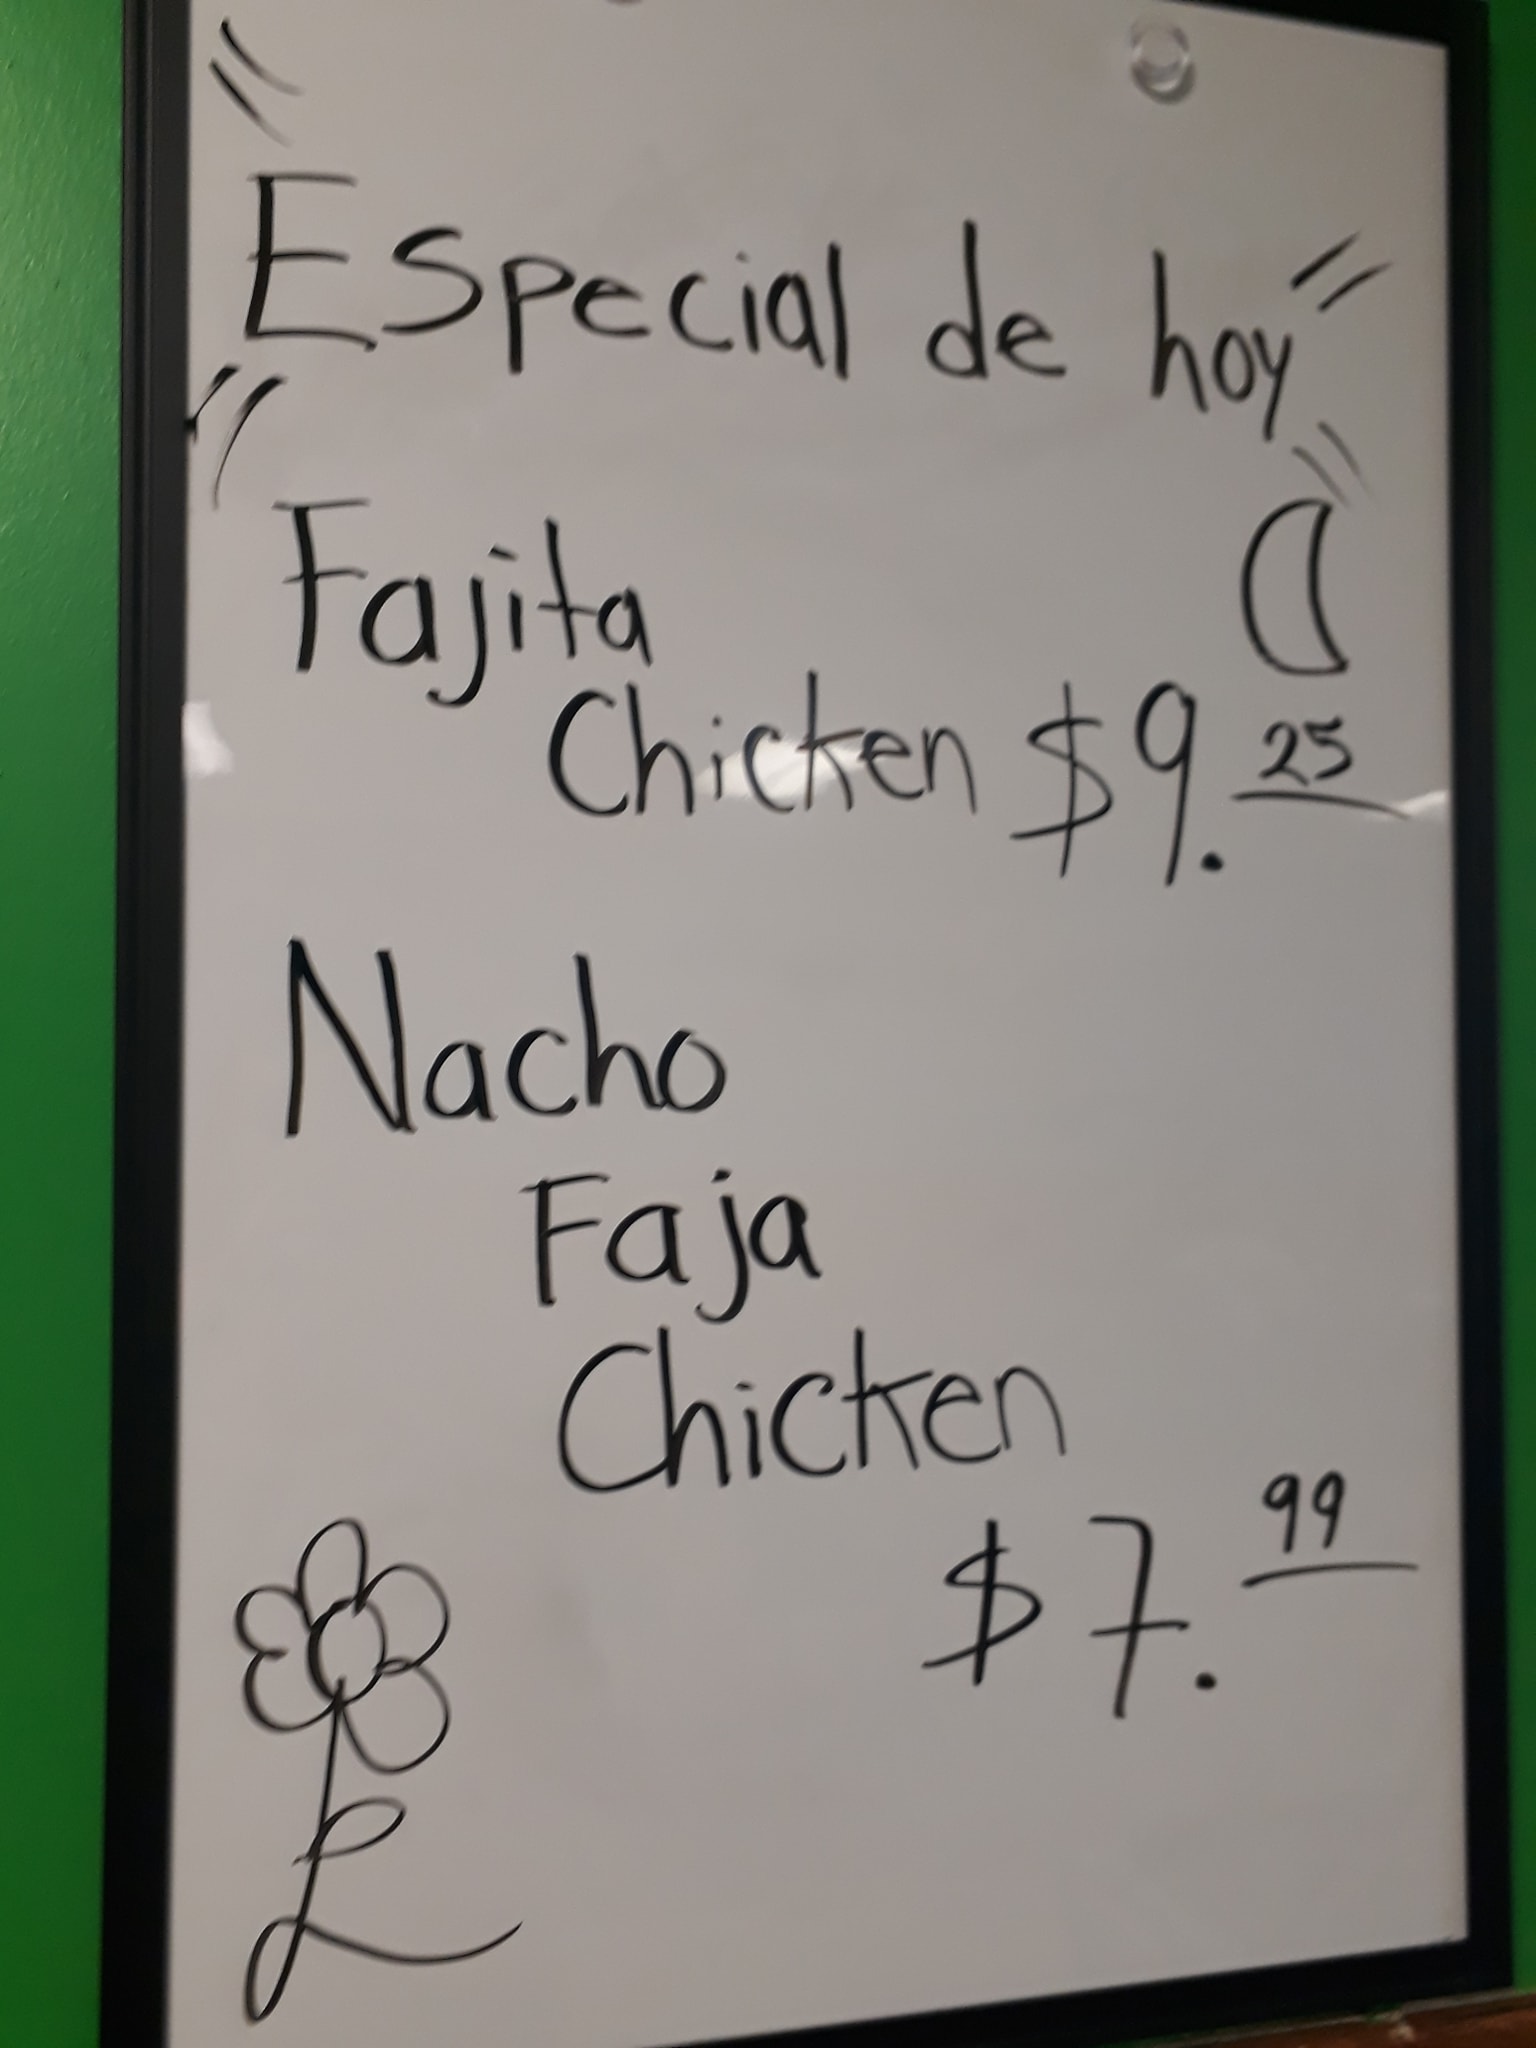 "Especial de hoy"
Fajita
Chicken $9.25
Nacho
Faja
Chicken
$7.99